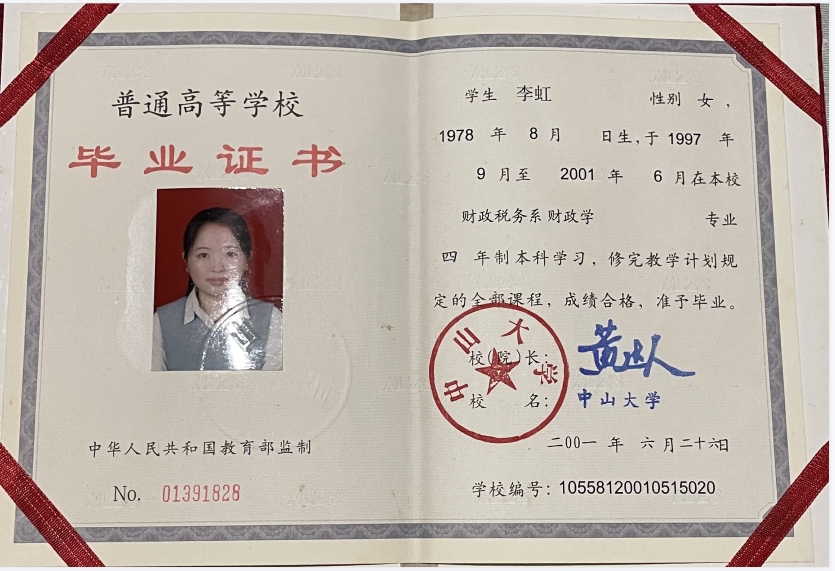 普通高等学校
毕业证书
中华人民共和国教育部监制
No. 01391828
学生 李虹 性别 女，
1978 年 8 月 日生，于 1997 年
9 月至 2001 年 6 月在本校
财政税务系财政学 专业
四 年制本科学习，修完教学计划规
定的全部课程，成绩合格，准予毕业。
中山大学
校(院)长： 黄达人
校 名： 中山大学
二00一 年 六 月二十六日
学校编号：10558120010515020